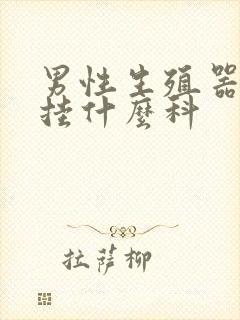 男性生殖器
挂什麼科
拉萨柳